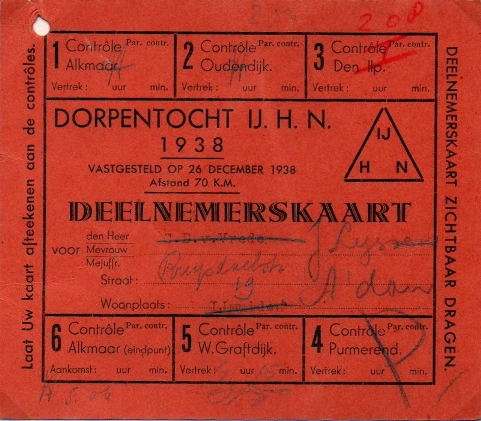 208
1 Contrôle Par. contr.
Alkmaar.
Vertrek: uur min.
2 Contrôle Par. contr.
Oudendijk.
Vertrek: uur min.
3 Contrôle Par. contr.
Den Ilp.
Vertrek: uur min.
Laat Uw kaart afteekenen aan de contrôles.
DEELNEMERSKAART ZICHTBAAR DRAGEN.
DORPENTOCHT IJ. H. N.
1938
VASTGESTELD OP 26 DECEMBER 1938
Afstand 70 K.M.
IJ
H N
DEELNEMERSKAART
den Heer
voor Mevrouw
Mejuffr.
Straat:
19
Woonplaats: A'dam
6 Contrôle Par. contr.
Alkmaar (eindpunt)
Aankomst: uur min.
5 Contrôle Par. contr.
W. Graftdijk.
Vertrek: uur min.
4 Contrôle Par. contr.
Purmerend.
Vertrek: uur min.